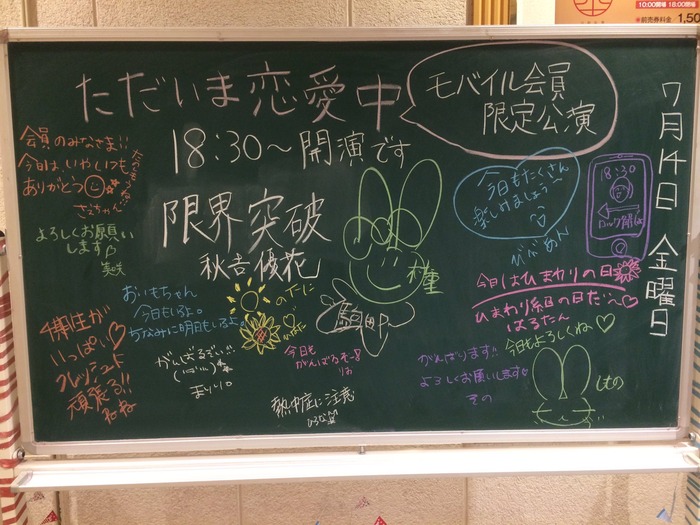 ただいま恋愛中
モバイル会員
限定公演
18:30〜開演です
7月14日 金曜日
限界突破
秋吉優花
会員のみなさま!!
今日は、いやいつも
ありがとう
さえちゃん
よろしくお願い
します
美咲
おいもちゃん
今日もいるよ。
ちなみに明日もいるよ。
個性が
いっぱい
クレッシェンド
頑張る!!
がんばるぞい!!
まりりい
今日も
がんばるぞー
りお
熱中症に注意
今日もたくさん
楽しみましょう〜♡
びびあん
18:30
ロック解除
今日はひまわりの日
ひまわり組の日だ〜
はるたん
がんばります!!
よろしくお願いします
その
今日もよろしくね♡
しの
10:00開場 18:00閉場
前売券料金 1,50